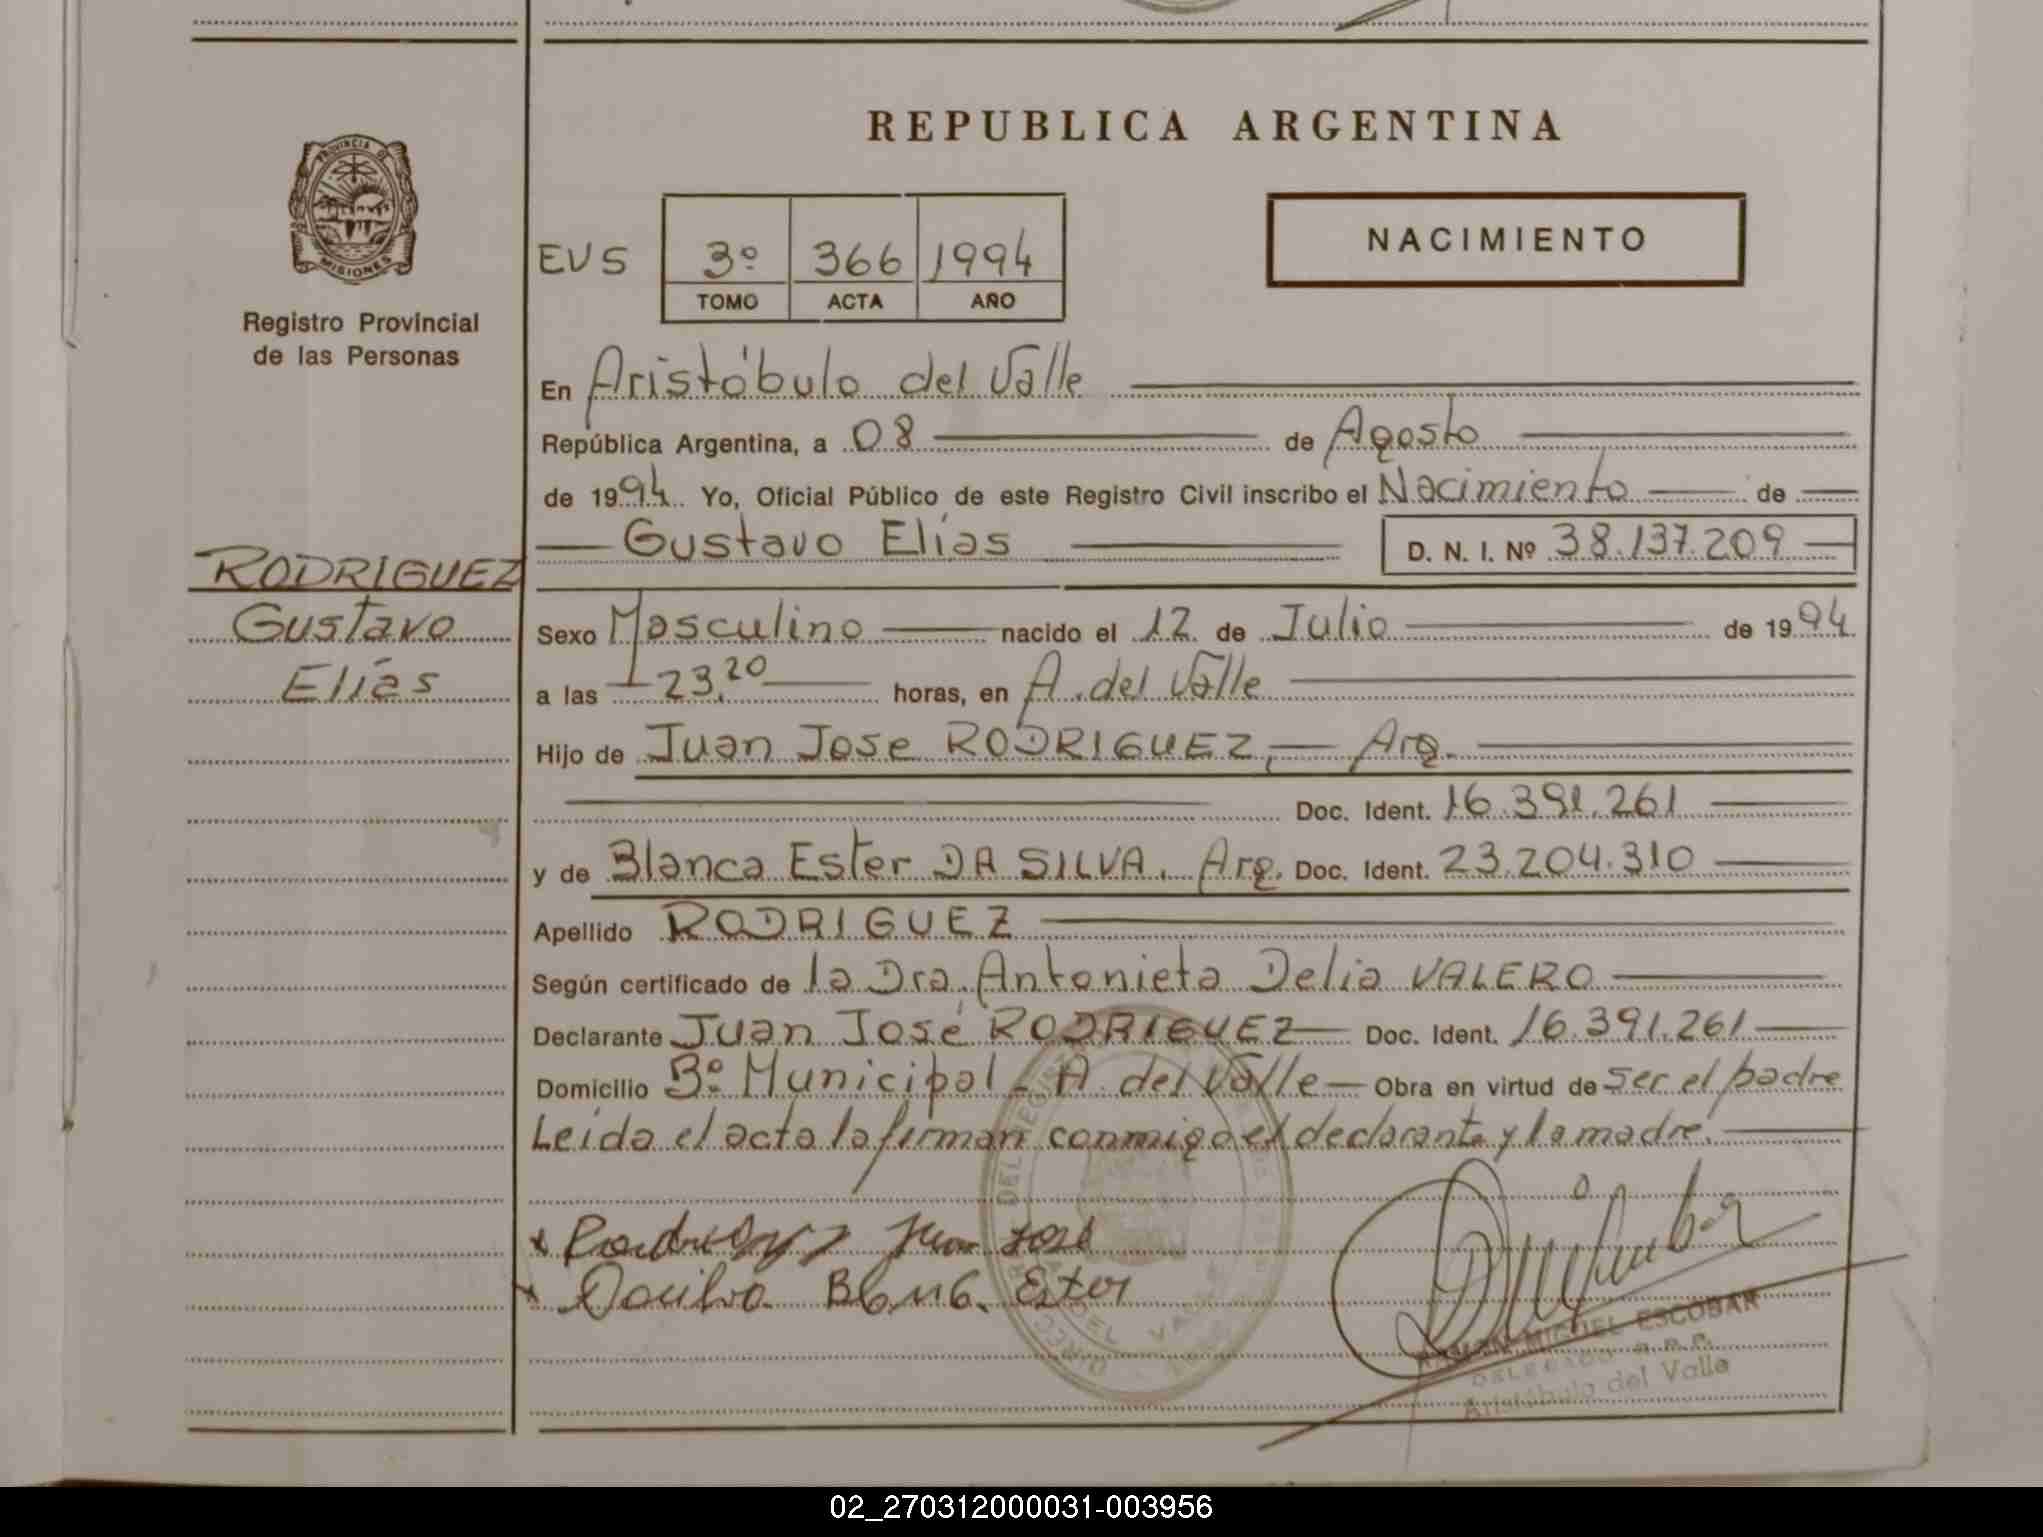 PROVINCIA DE
MISIONES
Registro Provincial
de las Personas
RODRIGUEZ
Gustavo
Elías
REPUBLICA ARGENTINA
EVS 3º 366 1994
TOMO ACTA AÑO
NACIMIENTO
En Aristóbulo del Valle
República Argentina, a 08 de Agosto
de 1994. Yo, Oficial Público de este Registro Civil inscribo el Nacimiento de
Gustavo Elías D. N. I. Nº 38.137.209
Sexo Masculino nacido el 12 de Julio de 1994
a las 23.20 horas, en A. del Valle
Hijo de Juan Jose RODRIGUEZ, Arg.
Doc. Ident. 16.391.261
y de Blanca Ester DA SILVA. Arg. Doc. Ident. 23.204.310
Apellido RODRIGUEZ
Según certificado de la Dra. Antonieta Delia VALERO
Declarante Juan José RODRIGUEZ Doc. Ident. 16.391.261
Domicilio Bº Municipal - A. del Valle Obra en virtud de ser el padre
Leída el acta la firman conmigo el declarante y la madre.
Juan José
Ester
MIGUEL ESCOBAR
DELEGADO R.P.P.
Aristóbulo del Valle
02_270312000031-003956